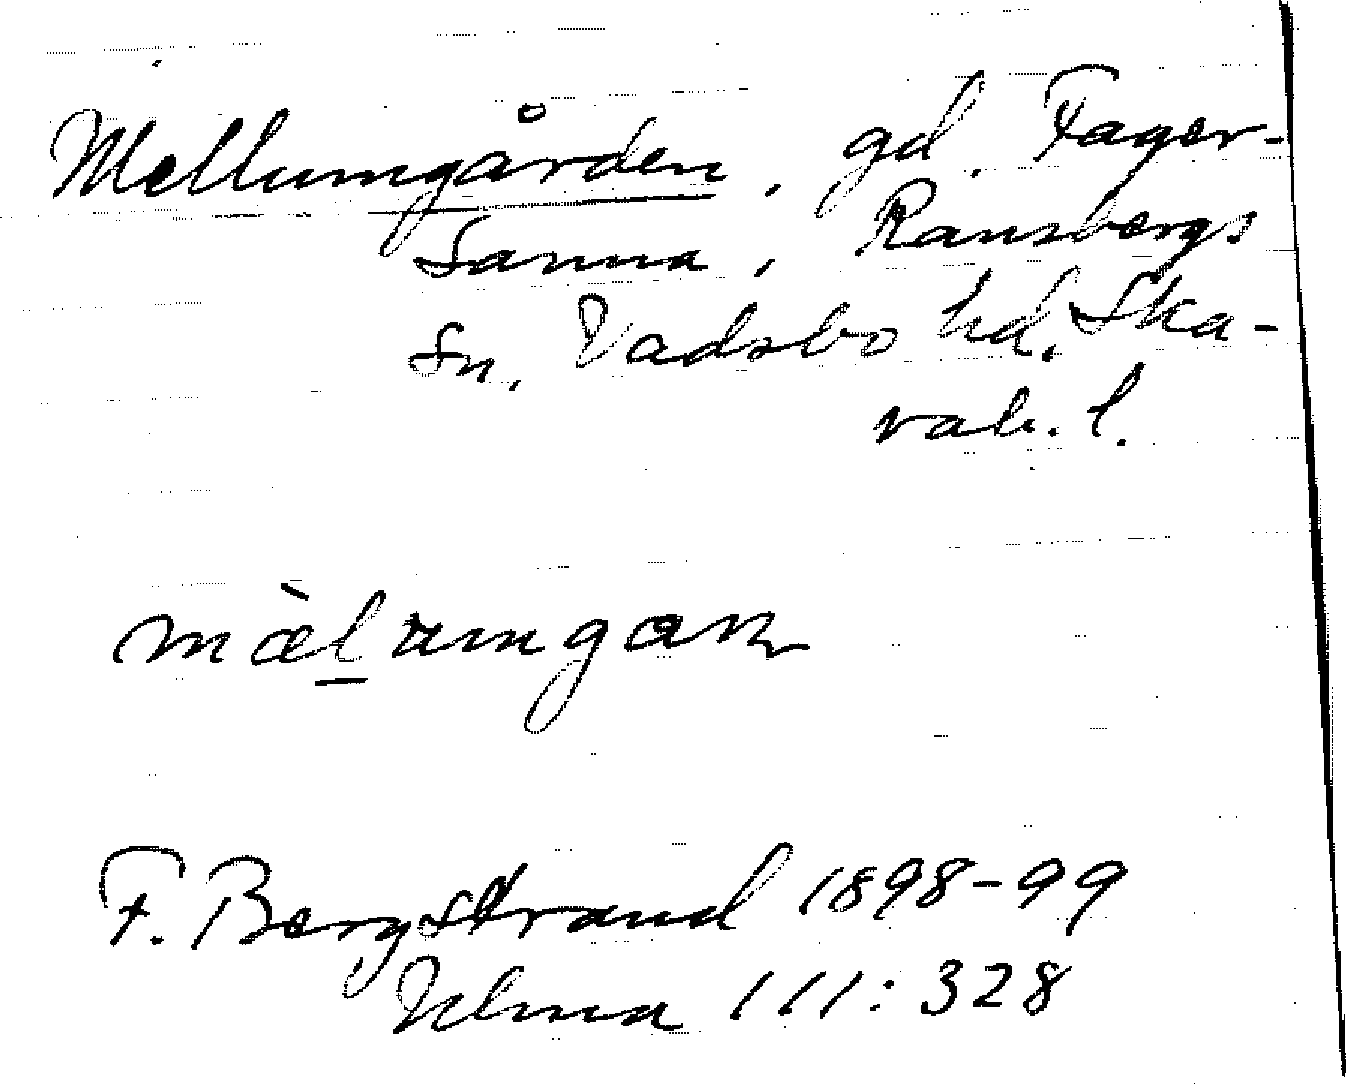 Mellumgården, gd. Fager-
sanna, Ransbergs
sn, Vadsbo hd. Ska-
rab. l.
mæ̀lumgaɳ
F. Bergstrand 1898-99
Ulma 111:328